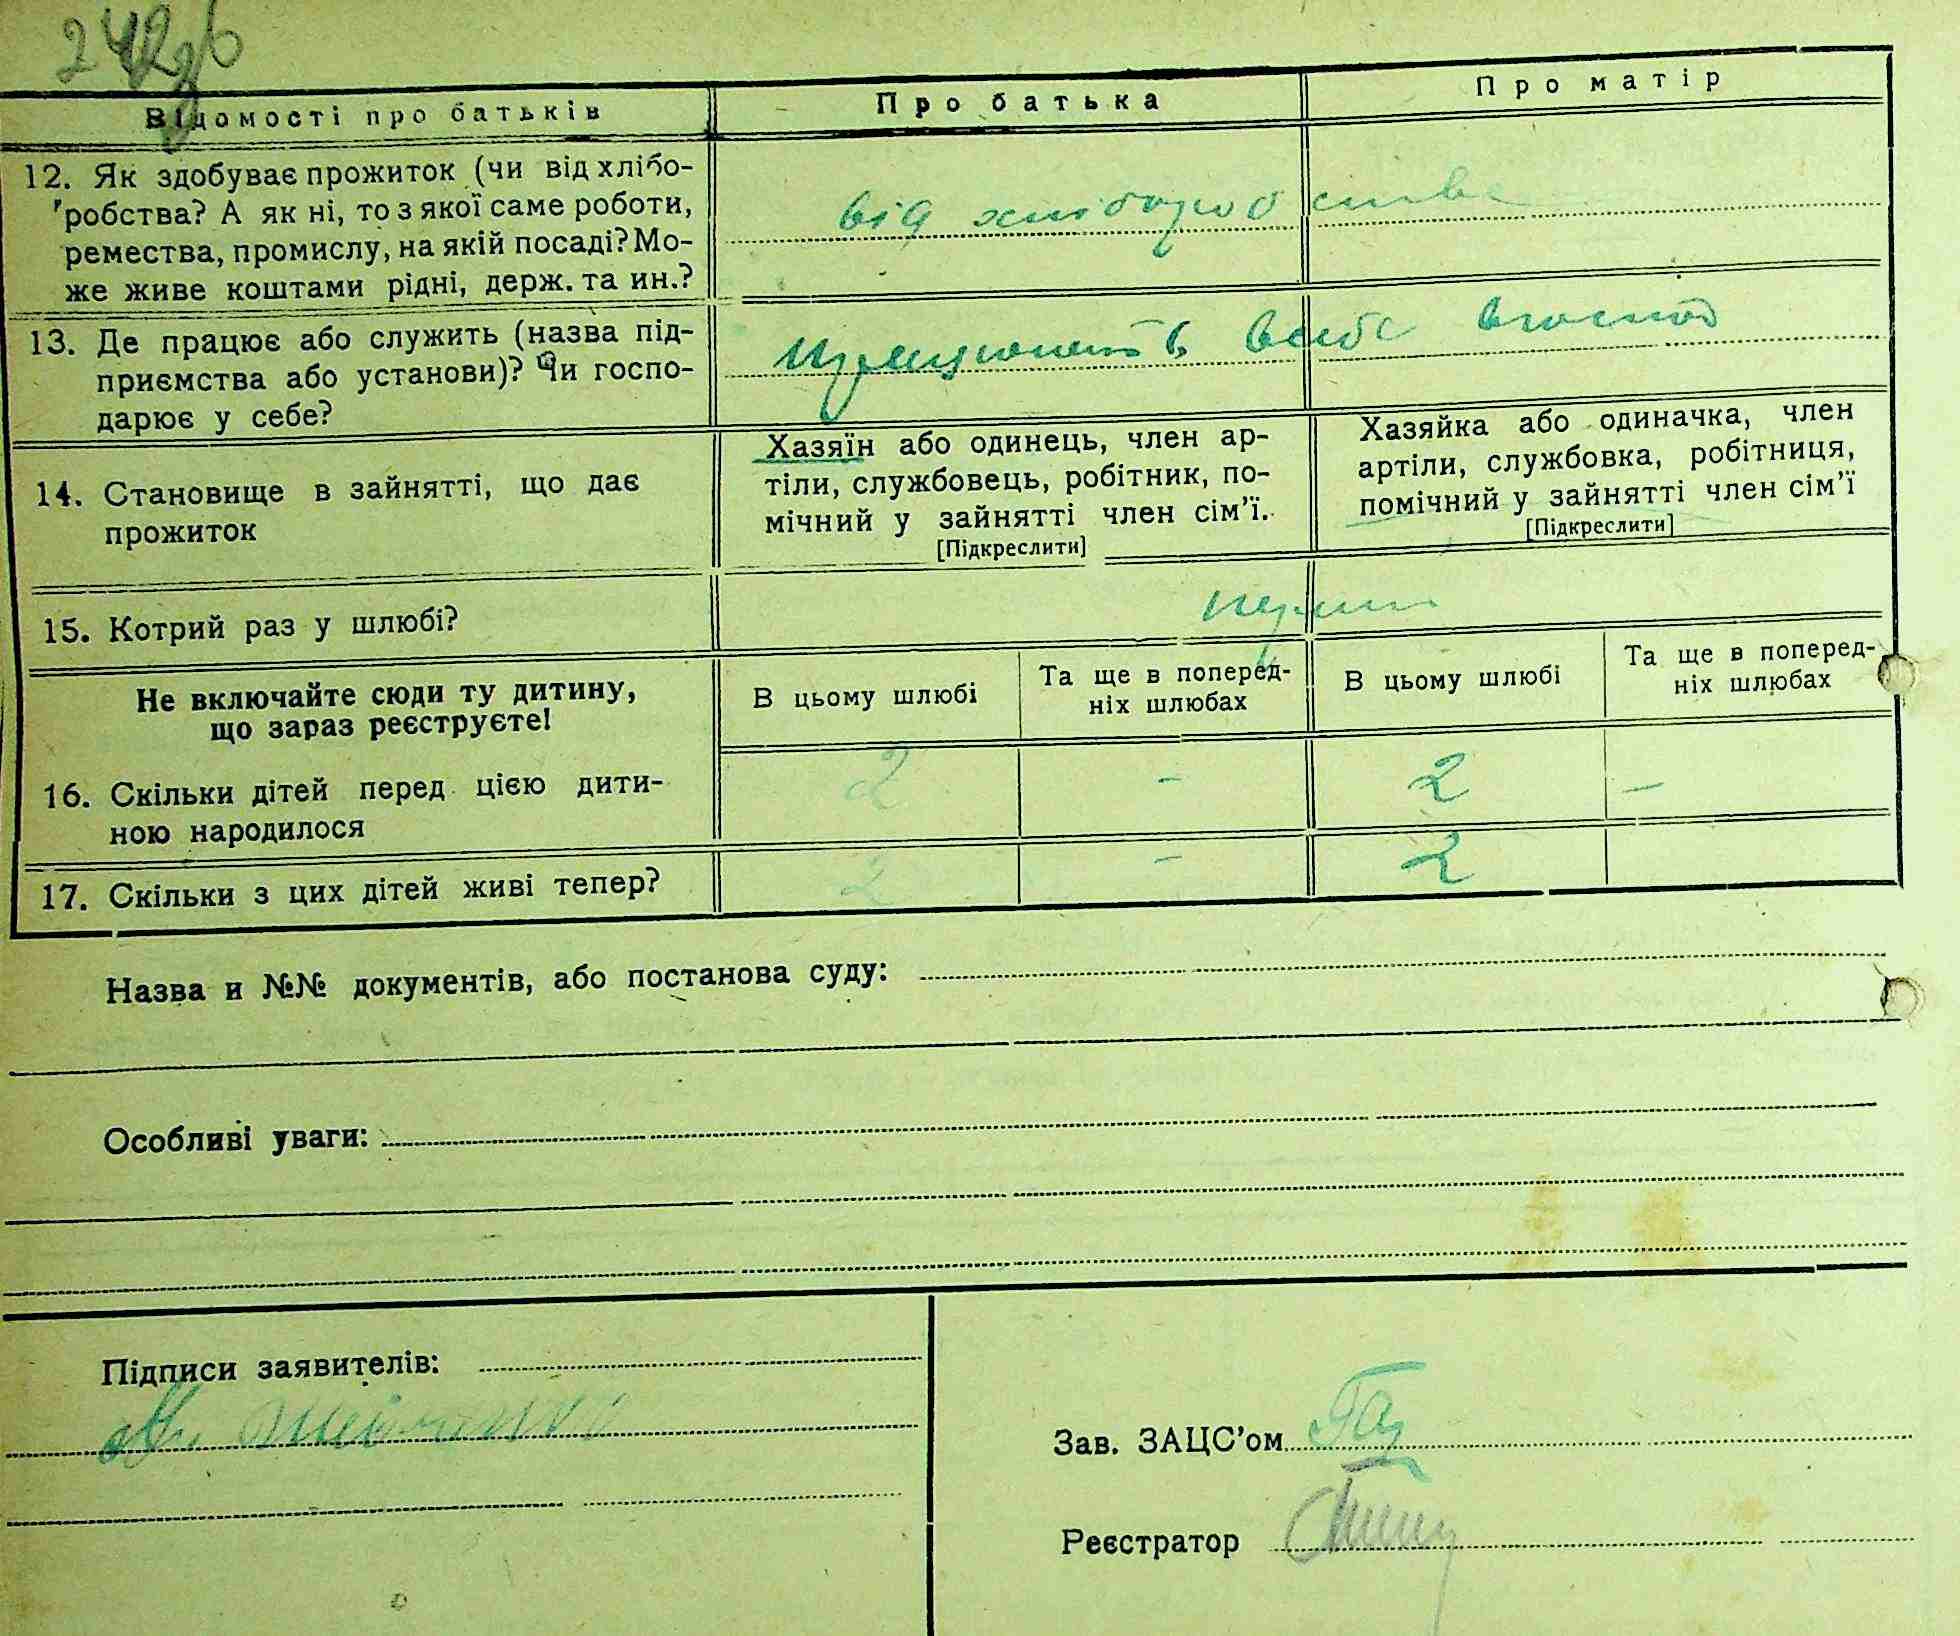 242
Відомості про батьків
Про батька
Про матір
12. Як здобуває прожиток (чи від хлібо-
робства? А як ні, то з якої саме роботи,
ремества, промислу, на якій посаді? Мо-
же живе коштами рідні, держ. та ин.?
від хліборобства
13. Де працює або служить (назва під-
приємства або установи)? Чи госпо-
дарює у себе?
працюють в себе
14. Становище в зайнятті, що дає
прожиток
Хазяїн або одинець, член ар-
тіли, службовець, робітник, по-
мічний у зайнятті член сім'ї.
[Підкреслити]
Хазяйка або одиначка, член
артіли, службовка, робітниця,
помічний у зайнятті член сім'ї
[Підкреслити]
15. Котрий раз у шлюбі?
Не включайте сюди ту дитину,
що зараз реєструєте!
В цьому шлюбі
Та ще в поперед-
ніх шлюбах
В цьому шлюбі
Та ще в поперед-
ніх шлюбах
16. Скільки дітей перед цією дити-
ною народилося
2 - 2 -
17. Скільки з цих дітей живі тепер?
2 - 2
Назва и №№ документів, або постанова суду:
Особливі уваги:
Підписи заявителів:
Зав. ЗАЦС'ом
Реєстратор